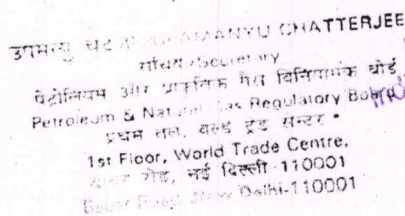 उपमन्यु चटर्जी/UPAMANYU CHATTERJEE
सचिव/Secretary
पेट्रोलियम और प्राकृतिक गैस विनियामक बोर्ड
Petroleum & Natural Gas Regulatory Board
प्रथम तल, वर्ल्ड ट्रेड सेन्टर
1st Floor, World Trade Centre,
रोड, नई दिल्ली-110001
Road, New Delhi-110001